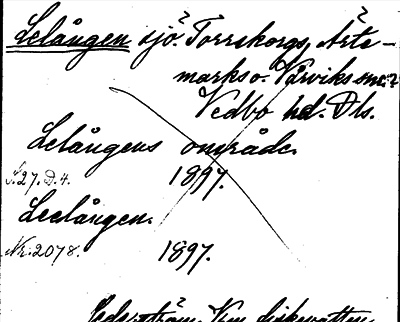 Lelången sjö. Torrskogs, Årte-
marks o. Vårviks snr
Vedbo hd. Dls.
Lelångens område.
S.27.D.4. 1897.
Leelången.
Nr. 2078. 1897.